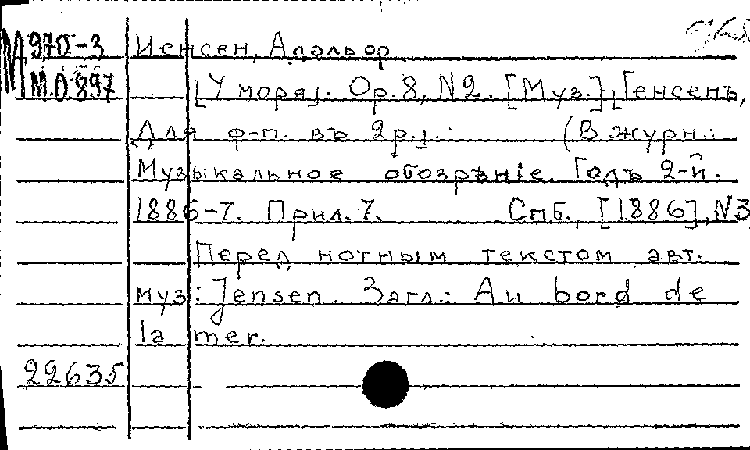 М 970-3 Иенсен, Адольф
М.О.897 [У моря]. Ор. 8, N2. [Муз.], Генсенъ,
Для ф-п. въ 2р.]. (В журн.:
Музыкальное обозрѣніе. Годъ 2-й.
1886-7. Прил. 7. Спб., [1886], N3
Перед нотным текстом авт.
муз: Jensen. Загл.: Au bord de
la mer.
22635